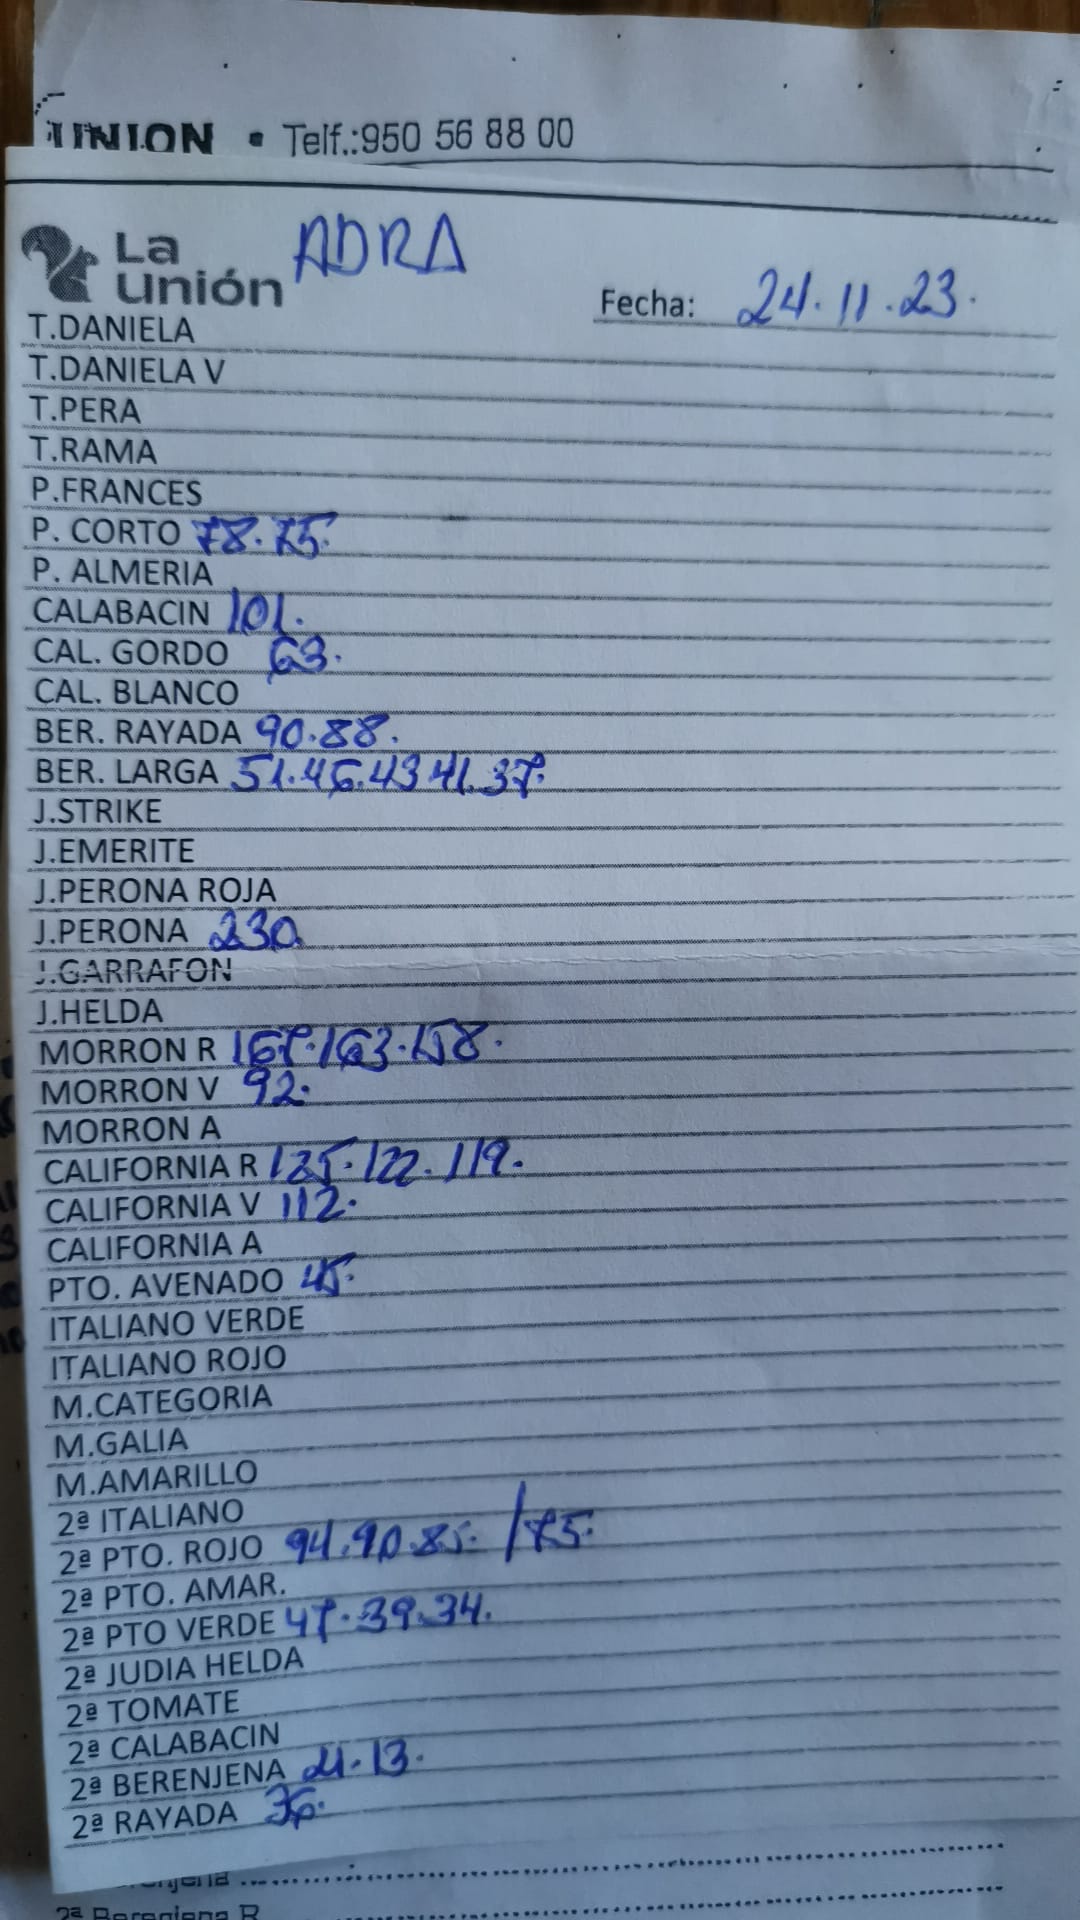 UNION • Telf.:950 56 88 00
La Unión ADRA
Fecha: 24.11.23.
T.DANIELA
T.DANIELA V
T.PERA
T.RAMA
P.FRANCES
P. CORTO 78.75.
P. ALMERIA
CALABACIN 101.
CAL. GORDO 63.
CAL. BLANCO
BER. RAYADA 90.88.
BER. LARGA 51.46.43 41.37.
J.STRIKE
J.EMERITE
J.PERONA ROJA
J.PERONA 230
J.GARRAFON
J.HELDA
MORRON R 167.163.158.
MORRON V 92.
MORRON A
CALIFORNIA R 125.122.119.
CALIFORNIA V 112.
CALIFORNIA A
PTO. AVENADO 45.
ITALIANO VERDE
ITALIANO ROJO
M.CATEGORIA
M.GALIA
M.AMARILLO
2ª ITALIANO
2ª PTO. ROJO 94.90.85. /75.
2ª PTO. AMAR.
2ª PTO VERDE 47.39.34.
2ª JUDIA HELDA
2ª TOMATE
2ª CALABACIN
2ª BERENJENA 21.13.
2ª RAYADA 36.
2ª Berenjena R